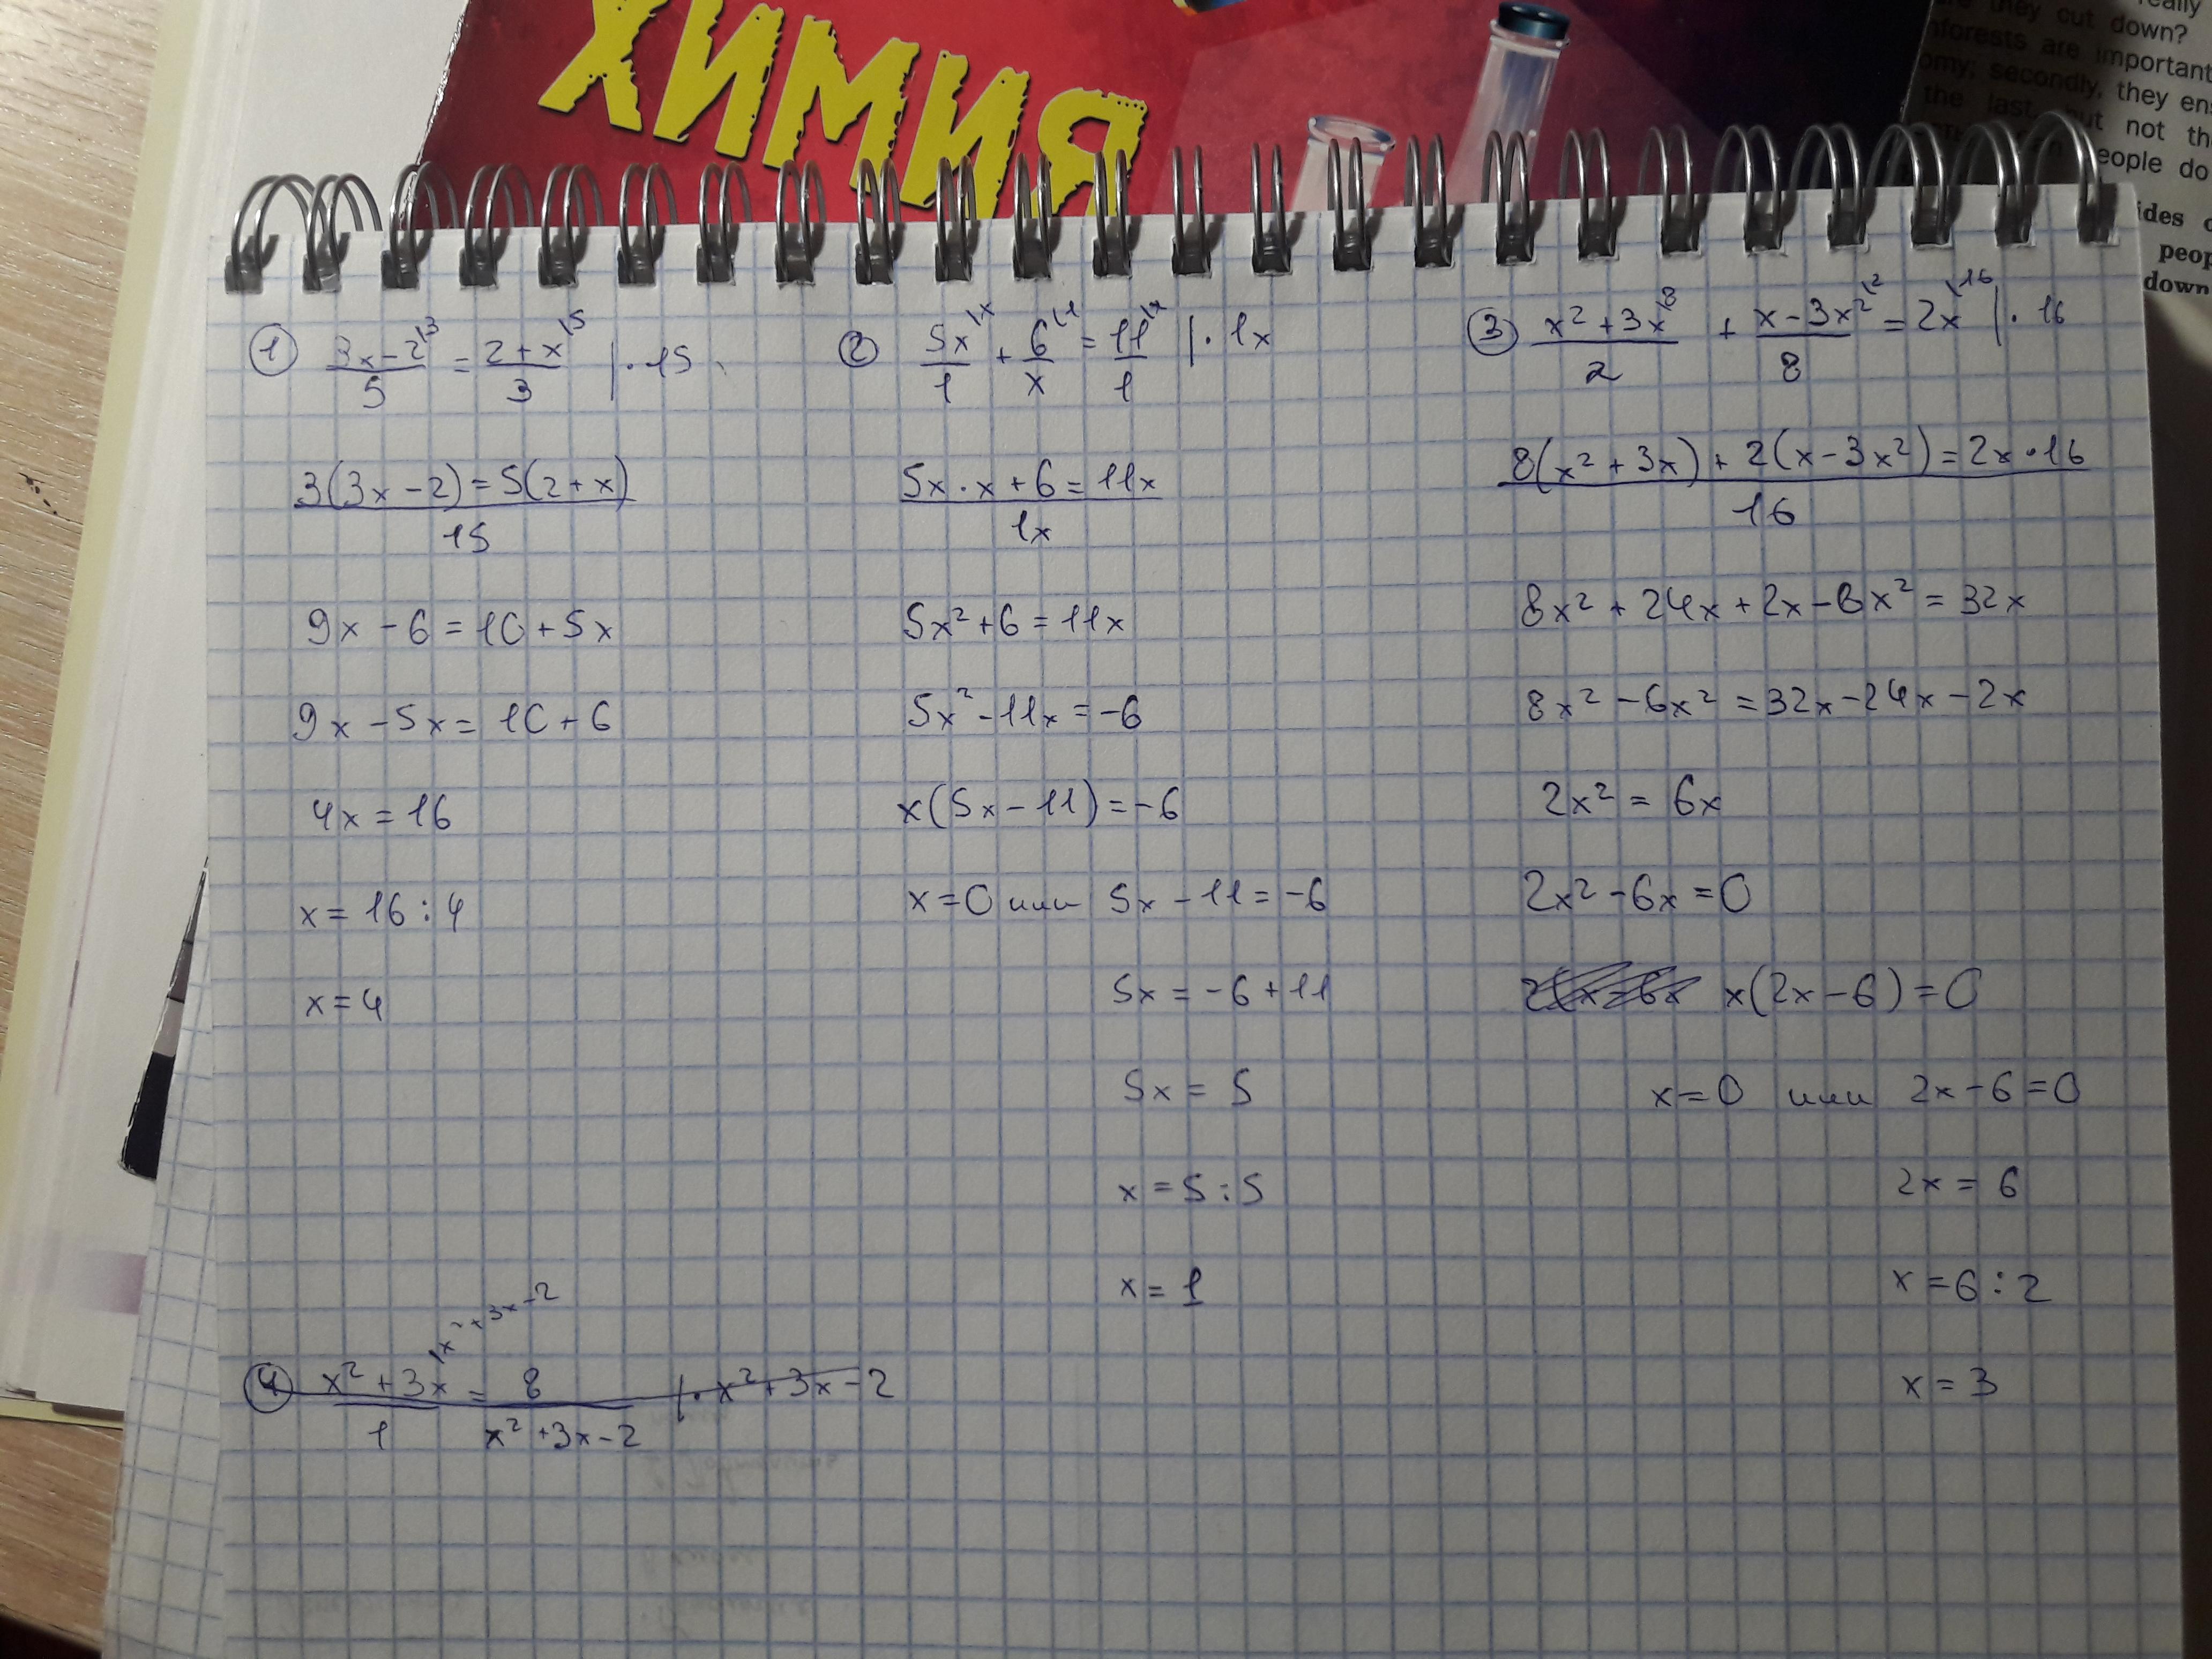 ХИМИЯ
really
are they cut down?
nforests are important
omy; secondly, they en
the last, but not th
people do
ides o
peop
down
① (3x-2)\3/5 = (2+x)\5/3 | · 15
3(3x-2)=5(2+x)
15
9x-6=10+5x
9x-5x=10+6
4x=16
x=16:4
x=4
② 5x\x/1 + 6\1/x = 11\x/1 | · 1x
5x·x+6=11x
1x
5x²+6=11x
5x²-11x=-6
x(5x-11)=-6
x=0 или 5x-11=-6
5x=-6+11
5x=5
x=5:5
x=1
③ (x²+3x)\8/2 + (x-3x²)\2/8 = 2x\16 | · 16
8(x²+3x)+2(x-3x²)=2x·16
16
8x²+24x+2x-6x²=32x
8x²-6x²=32x-24x-2x
2x²=6x
2x²-6x=0
x(2x-6)=0
x=0 или 2x-6=0
2x=6
x=6:2
x=3
④ (x²+3x)\x²+3x-2/1 = 8/(x²+3x-2) | · x²+3x-2